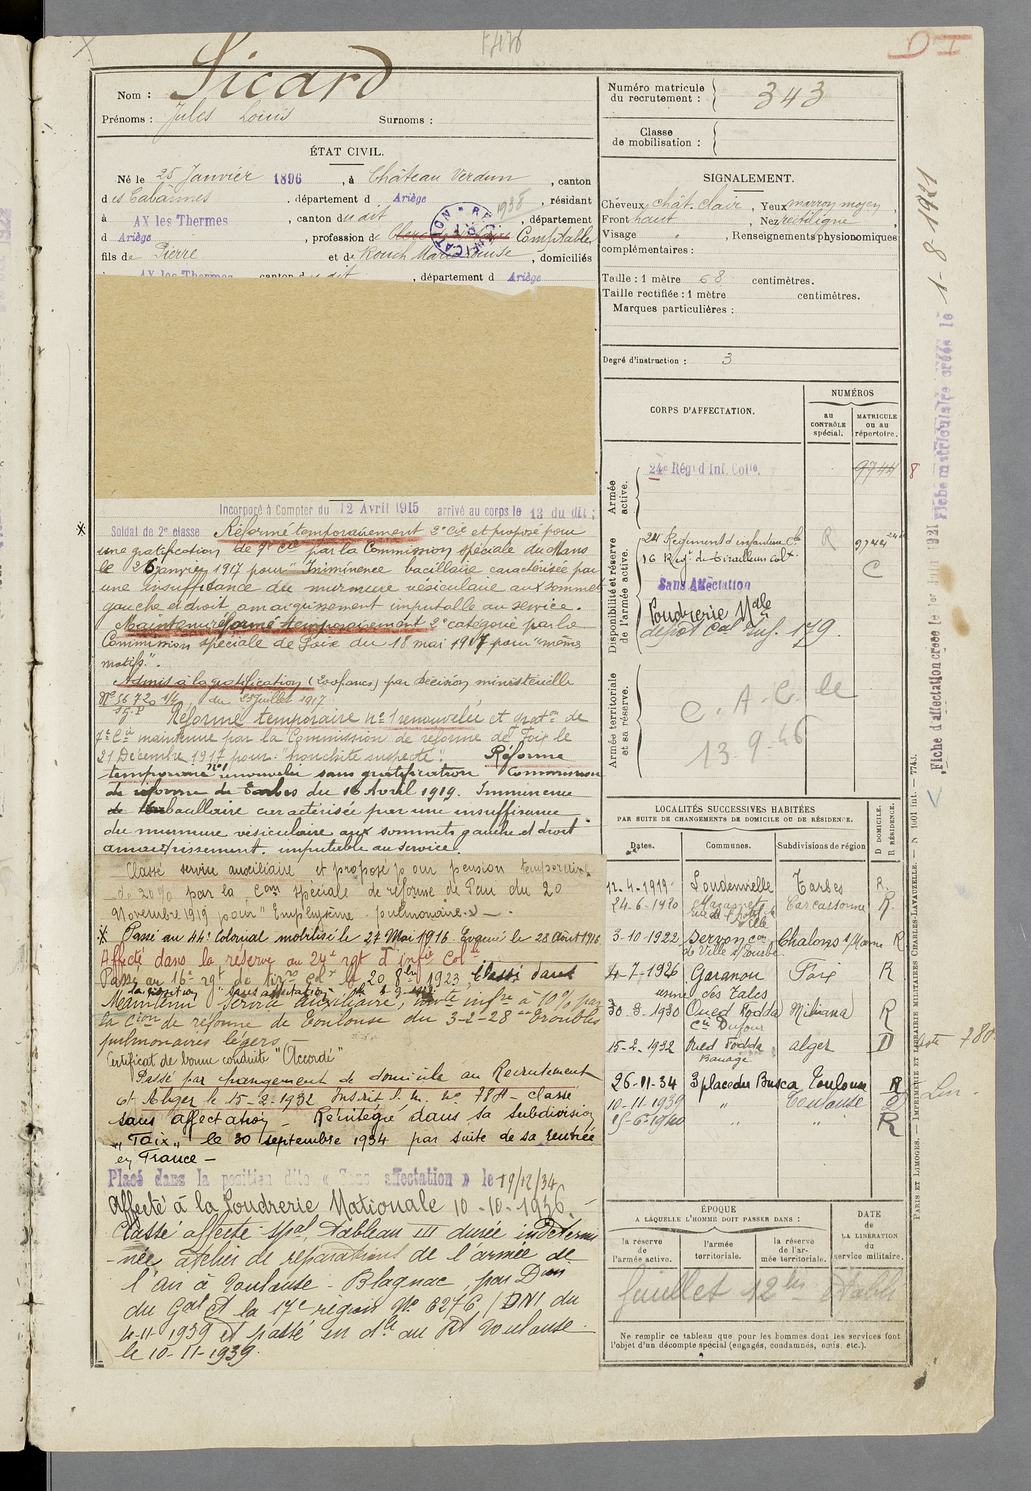 Nom : Sicard
Prénoms : Jules Louis Surnoms :
ÉTAT CIVIL.
Né le 25 Janvier 1896, à Château Verdun, canton
des Cabannes, département d Ariège, résidant
à AX les Thermes, canton du dit 1938, département
d Ariège, profession de Comptable
fils de Pierre et de Rouch Marie Louise, domiciliés
AX les Thermes canton du dit, département d Ariège
Incorporé à Compter du 12 Avril 1915 arrivé au corps le 13 du dit ;
Soldat de 2e classe Réformé temporairement 2e Cie et proposé pour
une gratification de 7e Cie par la Commission spéciale du Mans
le 26 janvier 1917 pour "Imminence bacillaire caractérisée par
une insuffisance du murmure vésiculaire aux sommets
gauche et droit amaigrissement imputable au service.
Maintenu réformé temporairement 2e catégorie par la
Commission spéciale de Foix du 18 mai 1917 pour "mêmes
motifs".
Admis à la gratification par décision ministérielle
No 56720 du juillet 1917
Réforme temporaire no 1 renouvelée et graton de
7e Cie maintenue par la Commission de réforme de Foix le
21 Décembre 1917 pour: "bronchite suspecte". Réforme
temporaire no 1 renouvelée sans gratification Commission
de réforme de Tarbes du 16 Avril 1919. Imminence
bacillaire caractérisée par une insuffisance
du murmure vésiculaire aux sommets gauche et droit
amaigrissement. imputable au service.
Classé service auxiliaire et proposé pour pension temporaire
de 20% par la Com spéciale de réforme de Pau du 20
Novembre 1919 pour "Emphysème pulmonaire"
* Passé au 44e Colonial mobilisé le 27 Mai 1916. Evacué le 28 Août 1916
Affecté dans la réserve au 24e rgt d'infie Colle
Passé au 16e rgt de tirrs Colx le 20 8bre 1923, Classé dans
la position "sans affectation"
Maintenu Service auxiliaire, infre à 10% par
la Cion de réforme de Toulouse du 3-2-28 "Troubles
pulmonaires légers
Certificat de bonne conduite "Accordé"
Passé par changement de domicile au Recrutement
d'Alger le 15-2-1932 classé
sans affectation - Réintégré dans sa subdivision
"Foix" le 30 septembre 1934 par suite de sa rentrée
en France -
Placé dans la position dite « Sans affectation » le 19/12/34
Affecté à la Poudrerie Nationale 10-10-1936.
Classé affecté spal, Tableau III durée indétermi
-née, atelier de réparations de l'armée de
l'air à Toulouse - Blagnac, par Don
du Gal Ct la 17e région No 6276/DNI du
4-11-1939 et passé en dle au Rt Toulouse
le 10-11-1939.
Numéro matricule
du recrutement : 343
Classe
de mobilisation :
SIGNALEMENT.
Cheveux chât. clair, Yeux marron moyen,
Front haut, Nez rectiligne,
Visage, Renseignements physionomiques
complémentaires :
Taille : 1 mètre 68 centimètres.
Taille rectifiée : 1 mètre centimètres.
Marques particulières :
Degré d'instruction : 3
CORPS D'AFFECTATION.
NUMÉROS
au CONTRÔLE spécial.
MATRICULE ou au répertoire.
Armée active.
24e Régt d'Inf. Colle.
9744 8
Disponibilité et réserve de l'armée active.
24 Régiment d'infanterie Cle R 9744
16 Regt de Tirailleurs Colx C
Sans Affectation
Poudrerie Nale
dépôt Cal Inf. 179.
Armée territoriale et sa réserve.
C. A. C. le
13.9.46
LOCALITÉS SUCCESSIVES HABITÉES
PAR SUITE DE CHANGEMENTS DE DOMICILE OU DE RÉSIDENCE.
Dates. Communes. Subdivisions de région D DOMICILE. R RÉSIDENCE.
12-4-1919 Loudenvielle Tarbes R.
24-6-1920 Mazamet Carcassonne R.
3-10-1922 Servon Chalons s/Marne R
de Ville
4-7-1926 Garanou Foix R
usine des Talcs
30-8-1930 Oued Fodda Miliana R
Cie Dufour
15-2-1932 Oued Fodda alger D
Barrage
26-11-34 3 place du Busca Toulouse R
10-11-1939 " Toulouse D
15-6-1940 " " R
ÉPOQUE
A LAQUELLE L'HOMME DOIT PASSER DANS :
la réserve de l'armée active.
l'armée territoriale.
la réserve de l'armée territoriale.
DATE de LA LIBÉRATION du service militaire.
feuillet 12 bis établi
Ne remplir ce tableau que pour les hommes dont les services font
l'objet d'un décompte spécial (engagés, condamnés, omis, etc.).
Fiche matriculaire créée le 1-8 1921
Fiche d'affectation créée le 1er Juin 1921
PARIS ET LIMOGES. — IMPRIMERIE ET LIBRAIRIE MILITAIRES CHARLES-LAVAUZELLE. — N° 1001 int. — 7743.